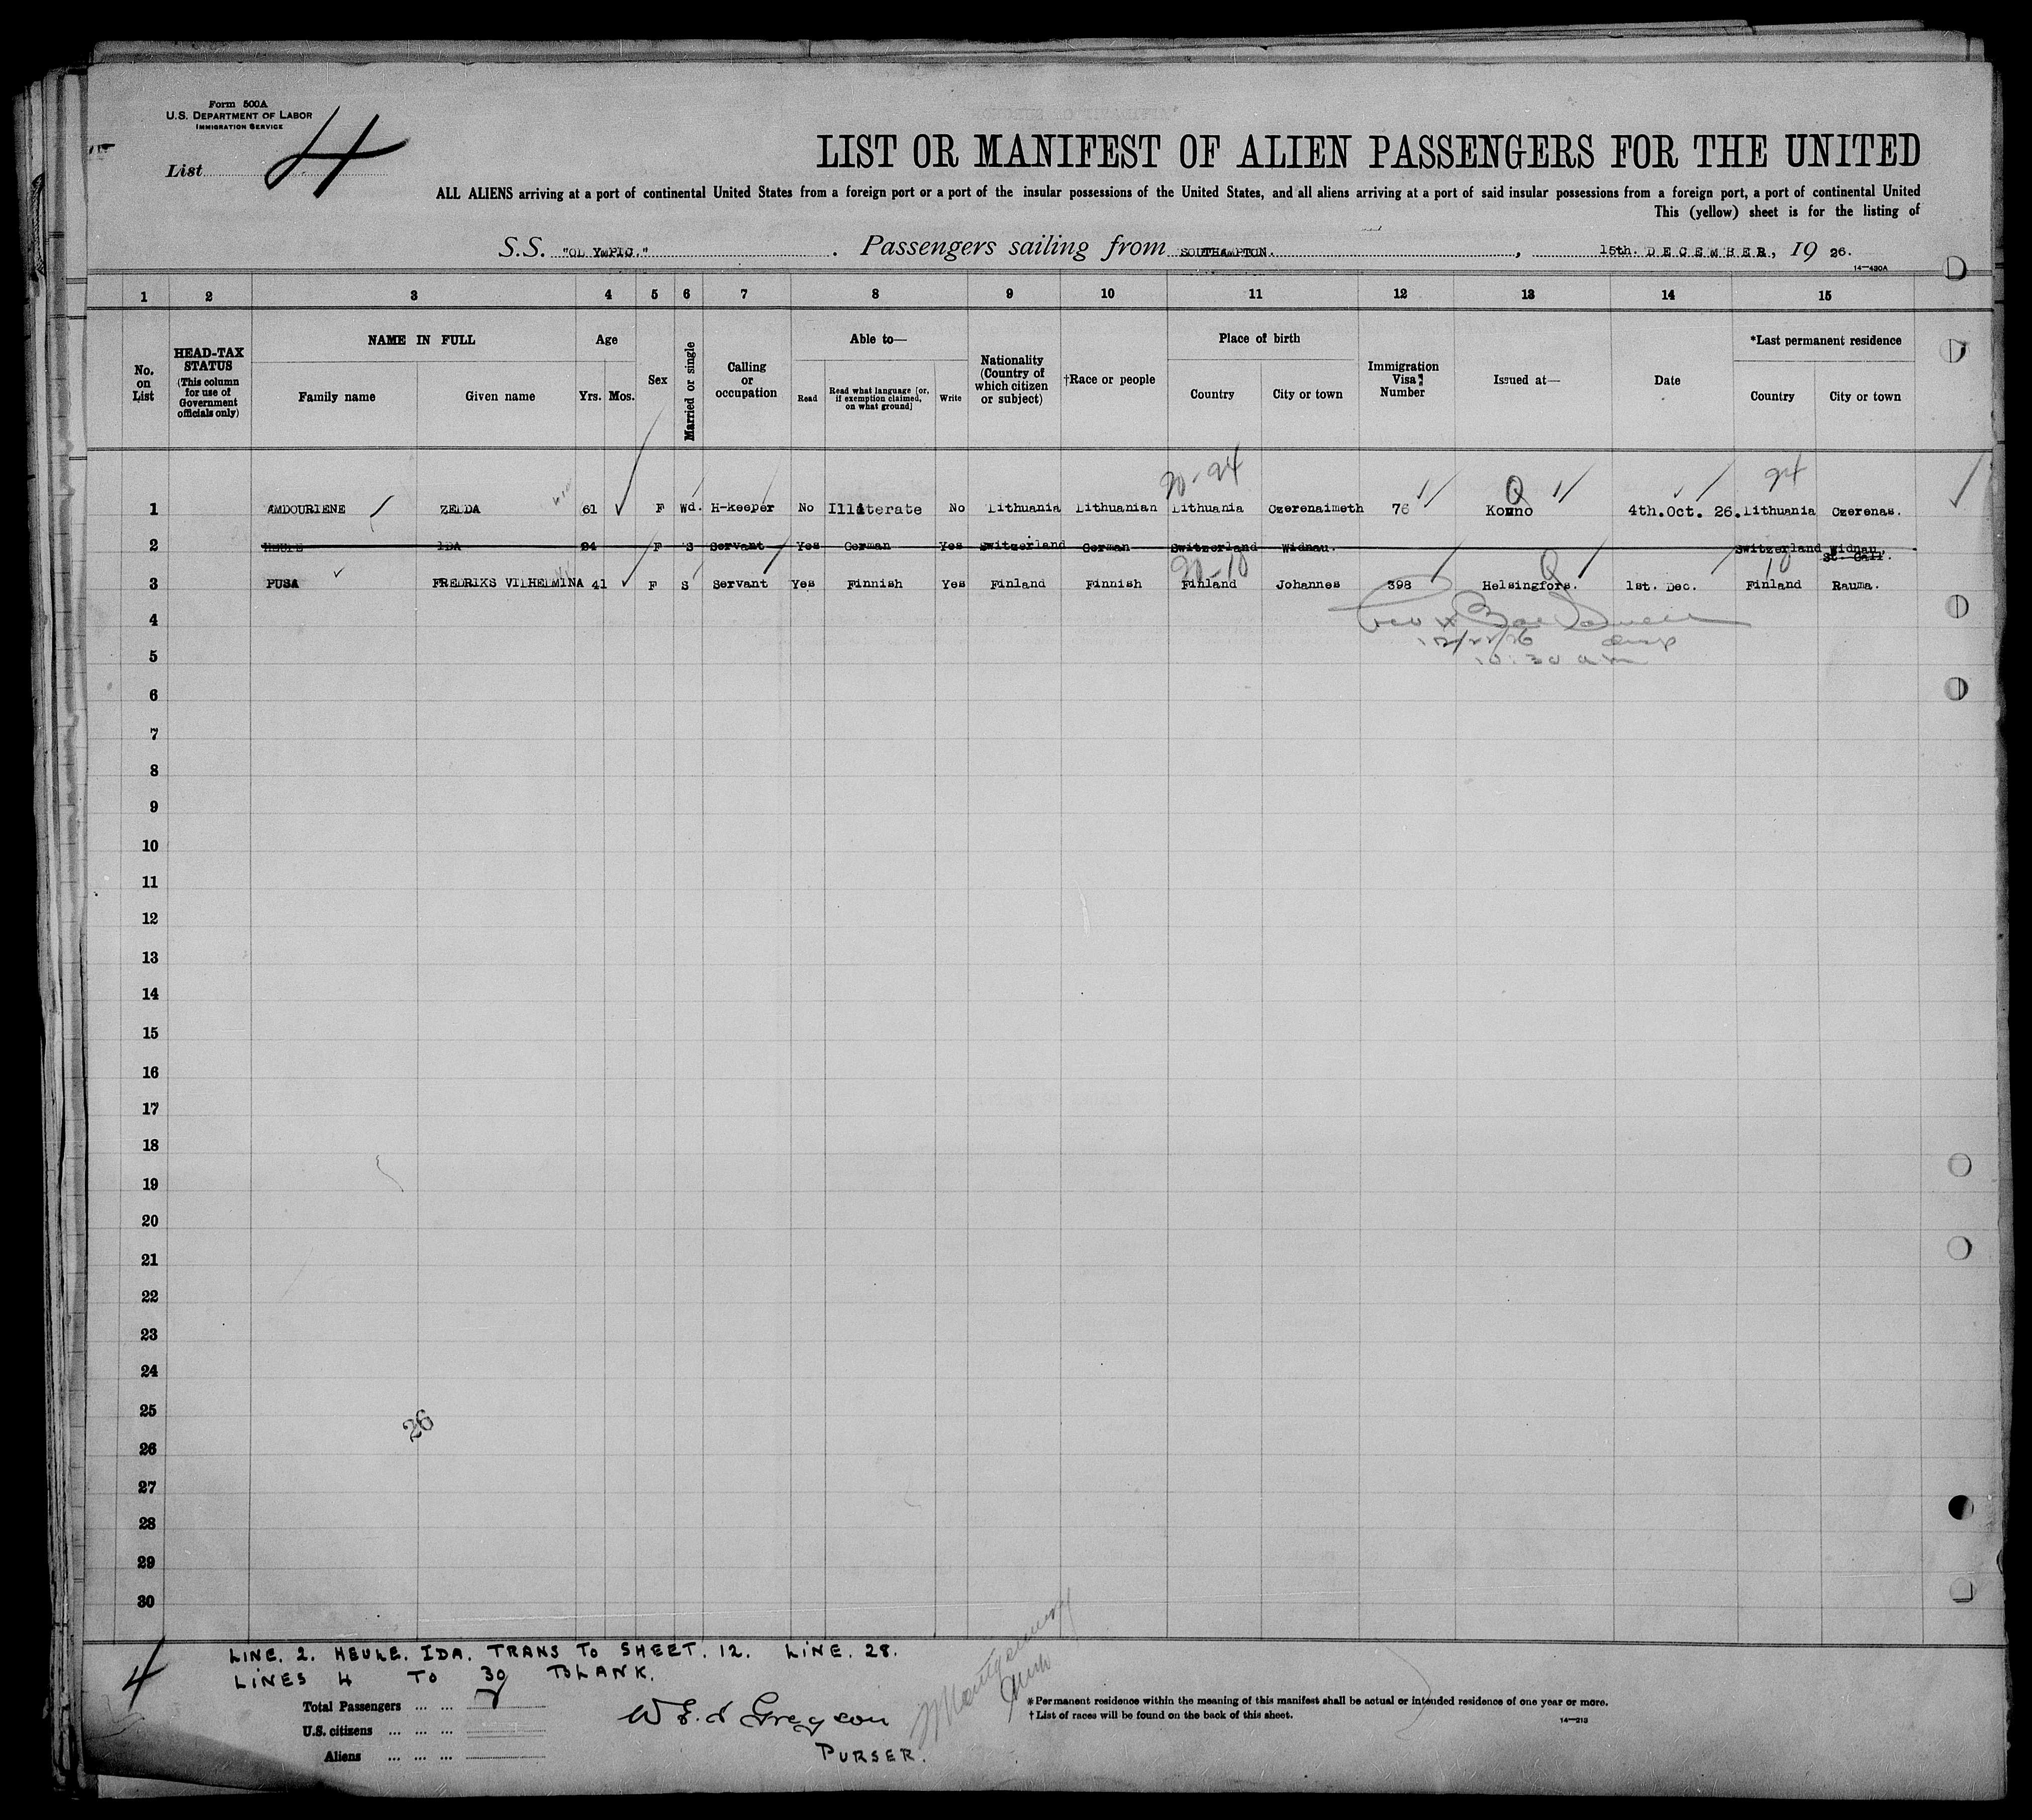 Form 500A
U.S. DEPARTMENT OF LABOR
IMMIGRATION SERVICE
List 4
LIST OR MANIFEST OF ALIEN PASSENGERS FOR THE UNITED
ALL ALIENS arriving at a port of continental United States from a foreign port or a port of the insular possessions of the United States, and all aliens arriving at a port of said insular possessions from a foreign port, a port of continental United
This (yellow) sheet is for the listing of
S.S. "OLYMPIC." Passengers sailing from SOUTHAMPTON., 15th. DECEMBER, 19 26.
14—430A
1 2 3 4 5 6 7 8 9 10 11 12 13 14 15
No. on List
HEAD-TAX STATUS (This column for use of Government officials only)
NAME IN FULL
Family name Given name
Age
Yrs. Mos.
Sex
Married or single
Calling or occupation
Able to—
Read Read what language [or, if exemption claimed, on what ground] Write
Nationality (Country of which citizen or subject)
†Race or people
Place of birth
Country City or town
Immigration Visa Number
Issued at—
Date
*Last permanent residence
Country City or town
20-24 Q 24
1 AMDOURIENE ZELDA 61 F Wd. H-keeper No Illiterate No Lithuania Lithuanian Lithuania Czerenaimeth 76 Kowno 4th.Oct. 26. Lithuania Czerenas.
2 HEULE IDA 24 F S Servant Yes German Yes Switzerland German Switzerland Widnau. Switzerland Widnau,
St Gall.
20-10 Q 10
3 PUSA FREDRIKS VILHELMINA 41 F S Servant Yes Finnish Yes Finland Finnish Finland Johannes 398 Helsingfors. 1st. Dec. Finland Rauma.
4
12/22/26
5
10:30 am
6
7
8
9
10
11
12
13
14
15
16
17
18
19
20
21
22
23
24
25
26
26
27
28
29
30
4
LINE. 2. HEULE. IDA. TRANS TO SHEET. 12. LINE. 28.
LINES 4 TO 30 BLANK.
Total Passengers ... ...
U.S. citizens ... ... ...
Aliens ... ... ...
Montgomery
PURSER.
*Permanent residence within the meaning of this manifest shall be actual or intended residence of one year or more.
†List of races will be found on the back of this sheet.
14—213